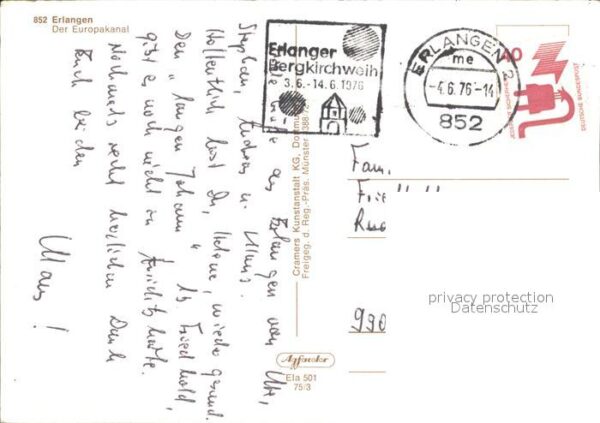 852 Erlangen
Der Europakanal
Erlanger
Bergkirchweih
3.6.-14.6.1976
ERLANGEN 2
me
-4.6.76-14
852
40
DEUTSCHE BUNDESPOST
Viele Grüße aus Erlangen von Ute,
Stephan, Andreas u. Klaus.
Hoffentlich bist Du, Helene, wieder gesund.
Den "langen Johann"
gibt es noch nicht in
Nochmals recht herzlichen Dank
Euch beiden
Klaus!
Cramers Kunstanstalt KG, Dortmund
Freigeg. d. Reg.-Präs. Münster
Agfacolor
Ela 501
75/3
Fam.
privacy protection
Datenschutz